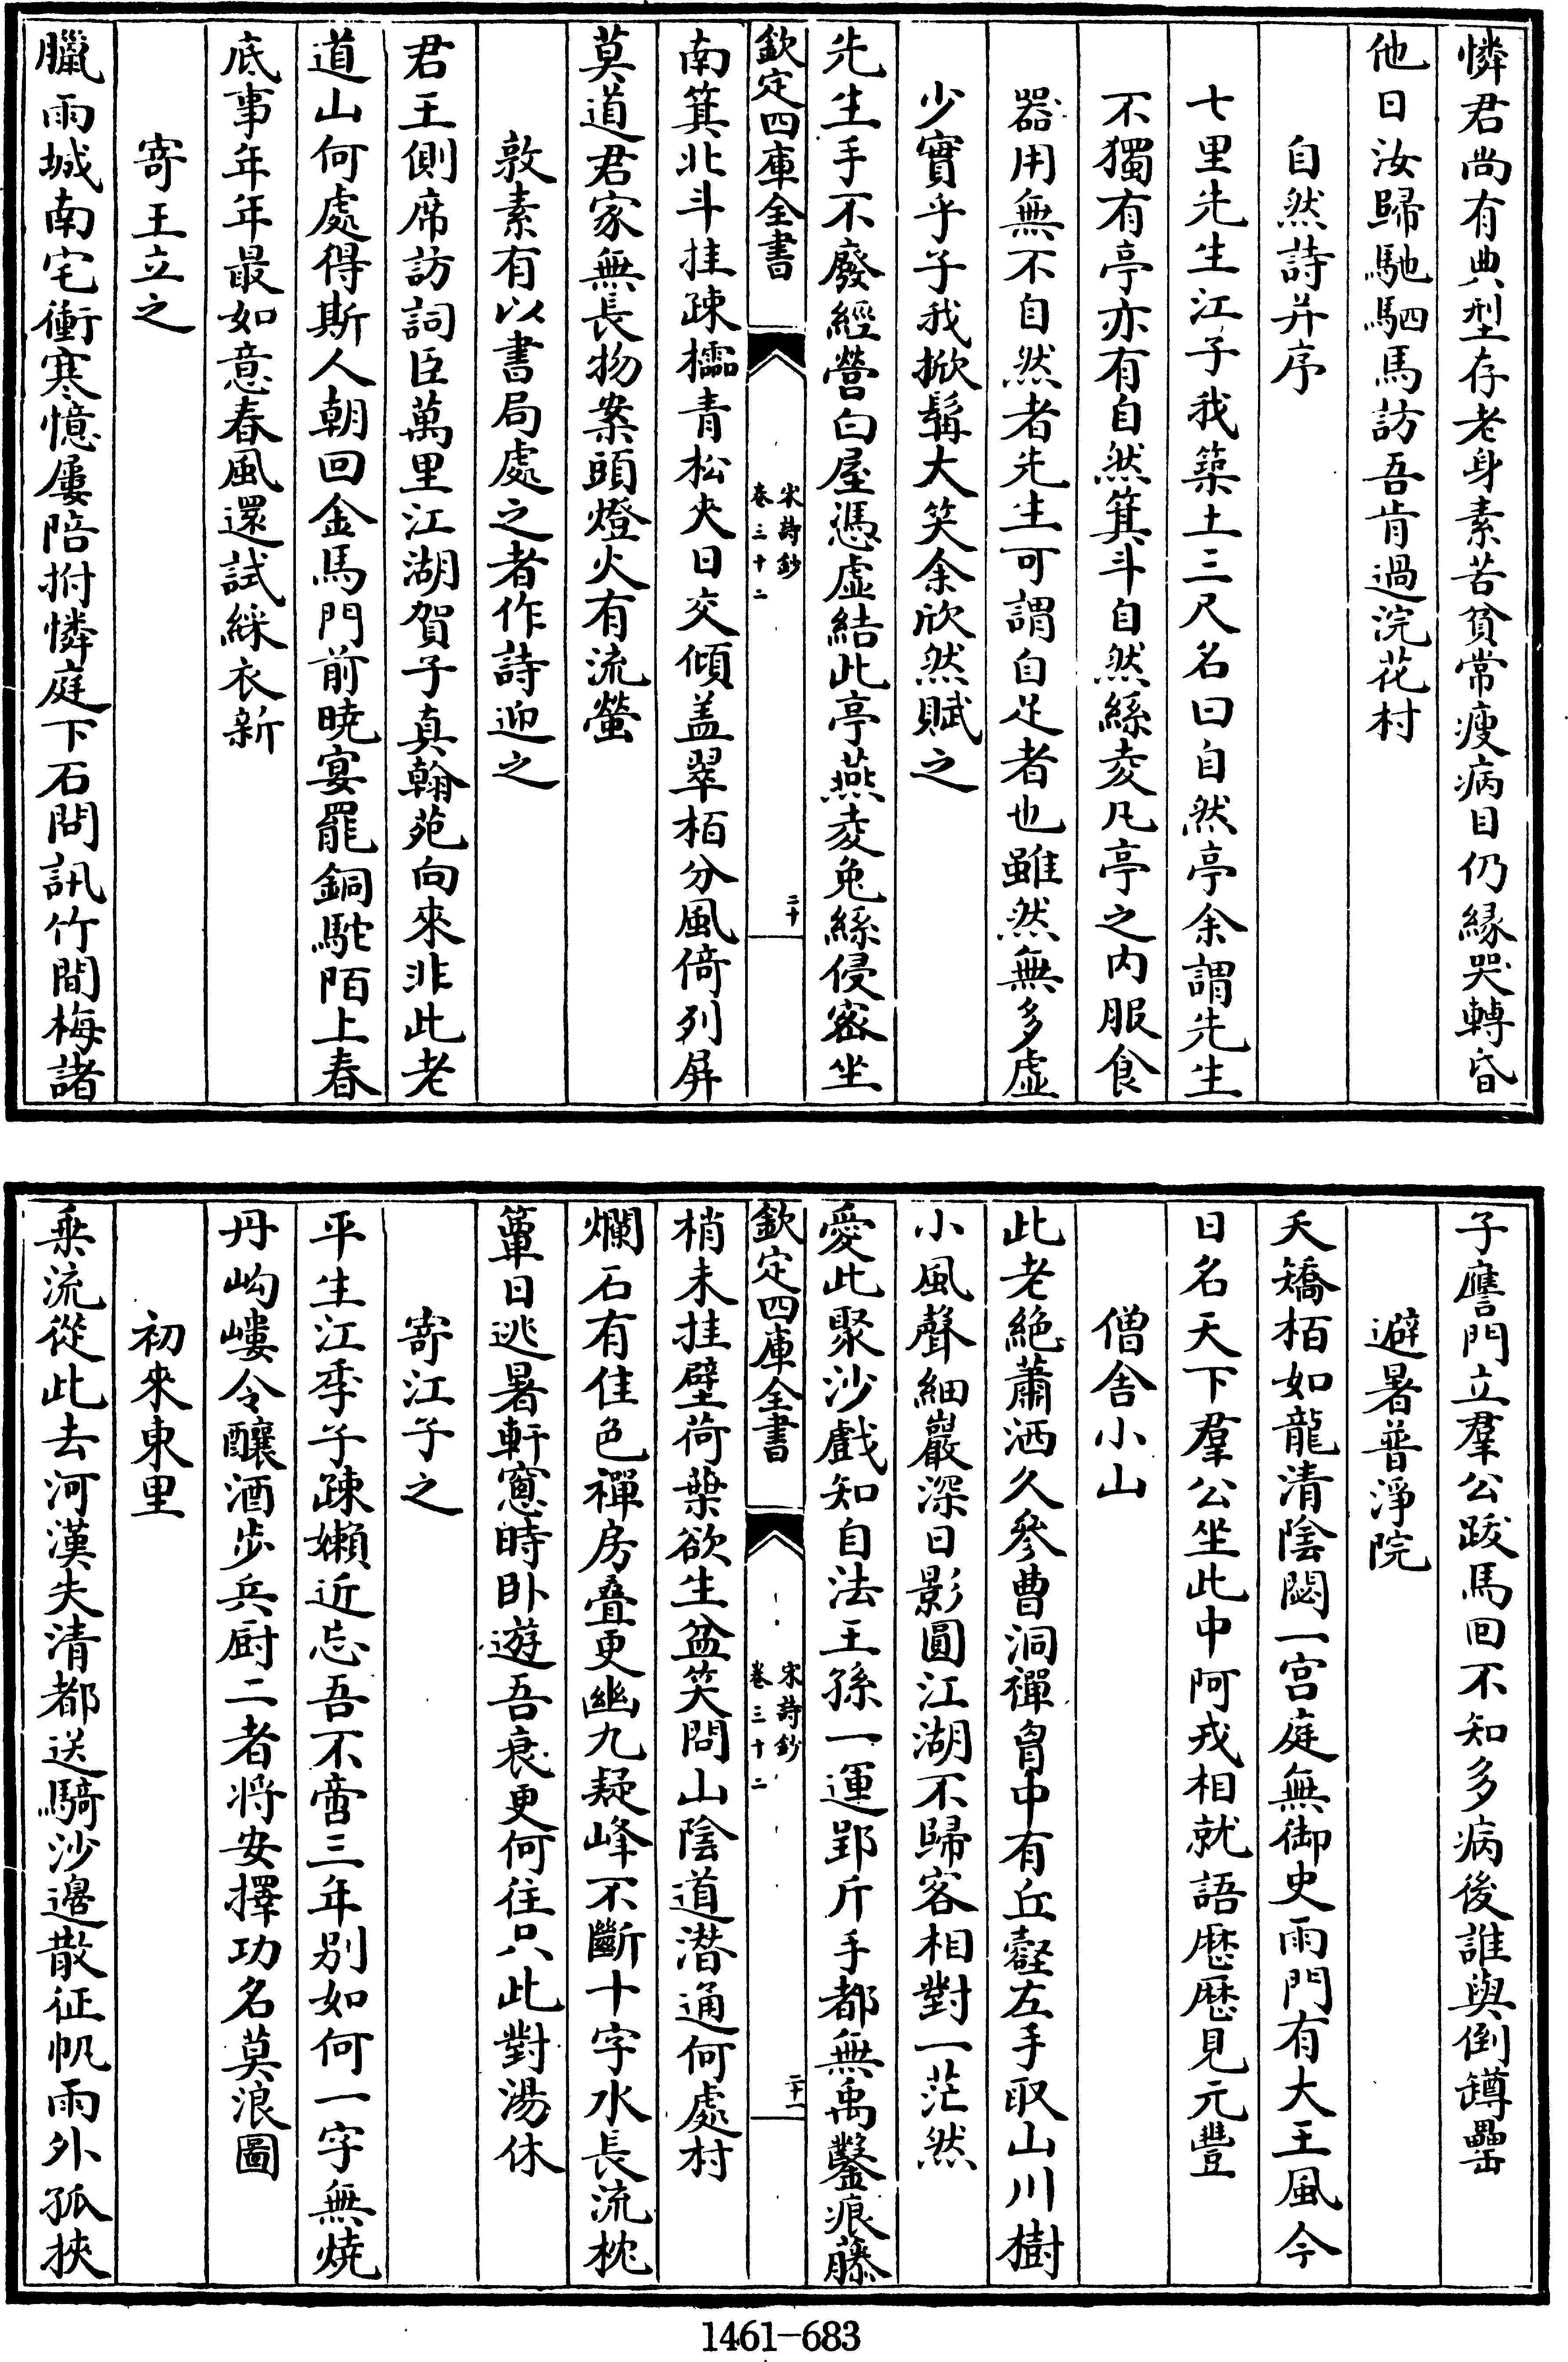 憐君尚有典型存老身素苦貧常瘦病目仍縁哭轉昏
他日汝歸馳駟馬訪吾肯過浣花村
自然詩并序
七里先生江子我築土三尺名曰自然亭余謂先生
不獨有亭亦有自然箕斗自然絲夌凡亭之内服食
器用無不自然者先生可謂自足者也雖然無多虛
少實乎子我掀髯大笑余欣然賦之
先生手不廢經營白屋憑虛結此亭燕夌兔絲侵宻坐
欽定四庫全書
宋詩鈔
卷三十二
二十
南箕北斗挂疎櫺青松夾日交傾盖翠栢分風倚列屏
莫道君家無長物案頭燈火有流螢
敦素有以書局處之者作詩迎之
君王側席訪詞臣萬里江湖賀子真翰苑向來非此老
道山何處得斯人朝回金馬門前曉宴罷銅駝陌上春
底事年年最如意春風還試綵衣新
寄王立之
臘雨城南宅衝寒憶屢陪拊憐庭下石問訊竹間梅諸
子譍門立羣公跋馬回不知多病後誰與倒罇罍
避暑普淨院
夭矯栢如龍清陰閟一宫庭無御史雨門有大王風今
日名天下羣公坐此中阿戎相就語歴歴見元豐
僧舍小山
此老絶蕭洒久參曹洞禪胷中有丘壑左手取山川樹
小風聲細巖深日影圓江湖不歸客相對一茫然
愛此聚沙戲知自法王孫一運郢斤手都無禹鑿痕藤
欽定四庫全書
宋詩鈔
卷三十二
二十一
梢未挂壁荷葉欲生盆笑問山陰道潜通何處村
爛石有佳色禪房叠更幽九疑峰不斷十字水長流枕
簟日逃暑軒窻時卧遊吾衰更何往只此對湯休
寄江子之
平生江季子疎嬾近忘吾不啻三年别如何一字無焼
丹岣嶁令釀酒步兵厨二者将安擇功名莫浪圖
初來東里
乗流從此去河漢失清都送騎沙邊散征帆雨外孤挾
1461-683